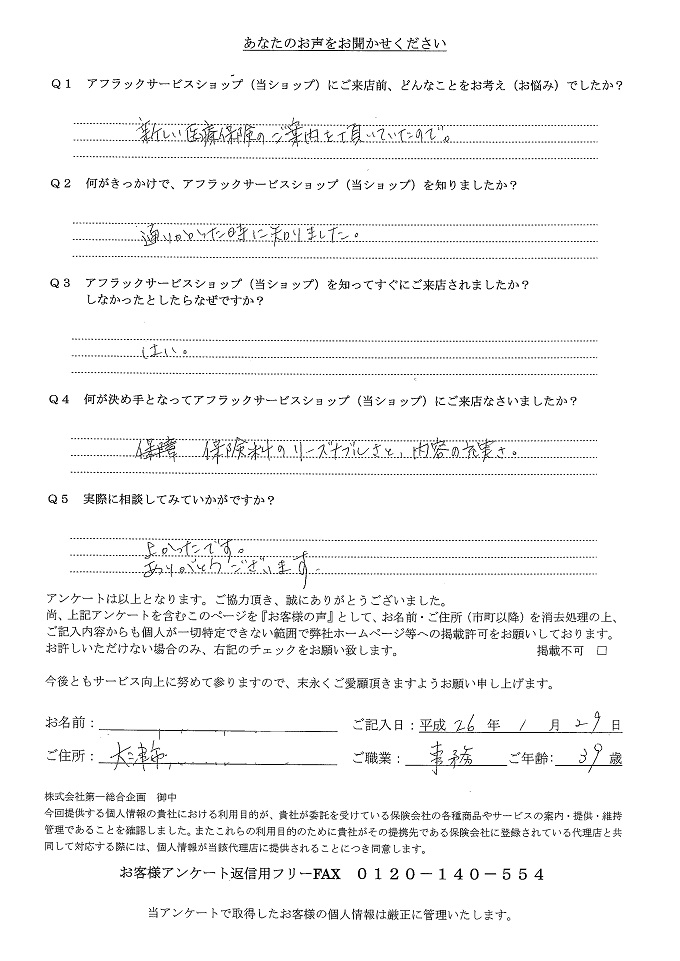 あなたのお声をお聞かせください
Q1 アフラックサービスショップ（当ショップ）にご来店前、どんなことをお考え（お悩み）でしたか？
新しい医療保険のご案内を頂いていたので。
Q2 何がきっかけで、アフラックサービスショップ（当ショップ）を知りましたか？
通りかかった時に知りました。
Q3 アフラックサービスショップ（当ショップ）を知ってすぐにご来店されましたか？
しなかったとしたらなぜですか？
はい。
Q4 何が決め手となってアフラックサービスショップ（当ショップ）にご来店なさいましたか？
保障 保険料のリーズナブルさと、内容の充実さ。
Q5 実際に相談してみていかがですか？
よかったです。
ありがとうございます
アンケートは以上となります。ご協力頂き、誠にありがとうございました。
尚、上記アンケートを含むこのページを『お客様の声』として、お名前・ご住所（市町以降）を消去処理の上、
ご記入内容からも個人が一切特定できない範囲で弊社ホームページ等への掲載許可をお願いしております。
お許しいただけない場合のみ、右記のチェックをお願い致します。 掲載不可 □
今後ともサービス向上に努めて参りますので、末永くご愛顧頂きますようお願い申し上げます。
お名前： ご記入日：平成 26 年 1 月 29 日
ご住所： 大津市 ご職業： 事務 ご年齢： 39 歳
株式会社第一総合企画 御中
今回提供する個人情報の貴社における利用目的が、貴社が委託を受けている保険会社の各種商品やサービスの案内・提供・維持
管理であることを確認しました。またこれらの利用目的のために貴社がその提携先である保険会社に登録されている代理店と共
同して対応する際には、個人情報が当該代理店に提供されることにつき同意します。
お客様アンケート返信用フリーFAX 0120－140－554
当アンケートで取得したお客様の個人情報は厳正に管理いたします。